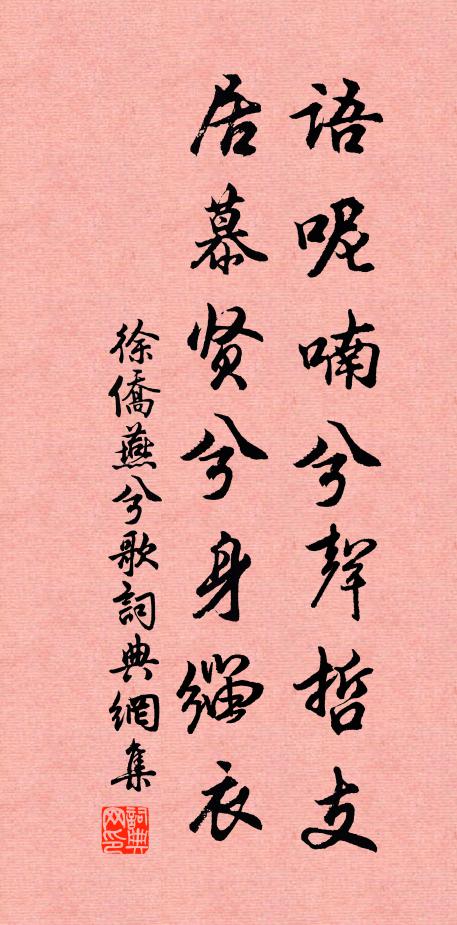 語呢喃兮聲哲支
居慕贤兮身緇衣
徐僑燕兮歌詞典網集
詞典网印